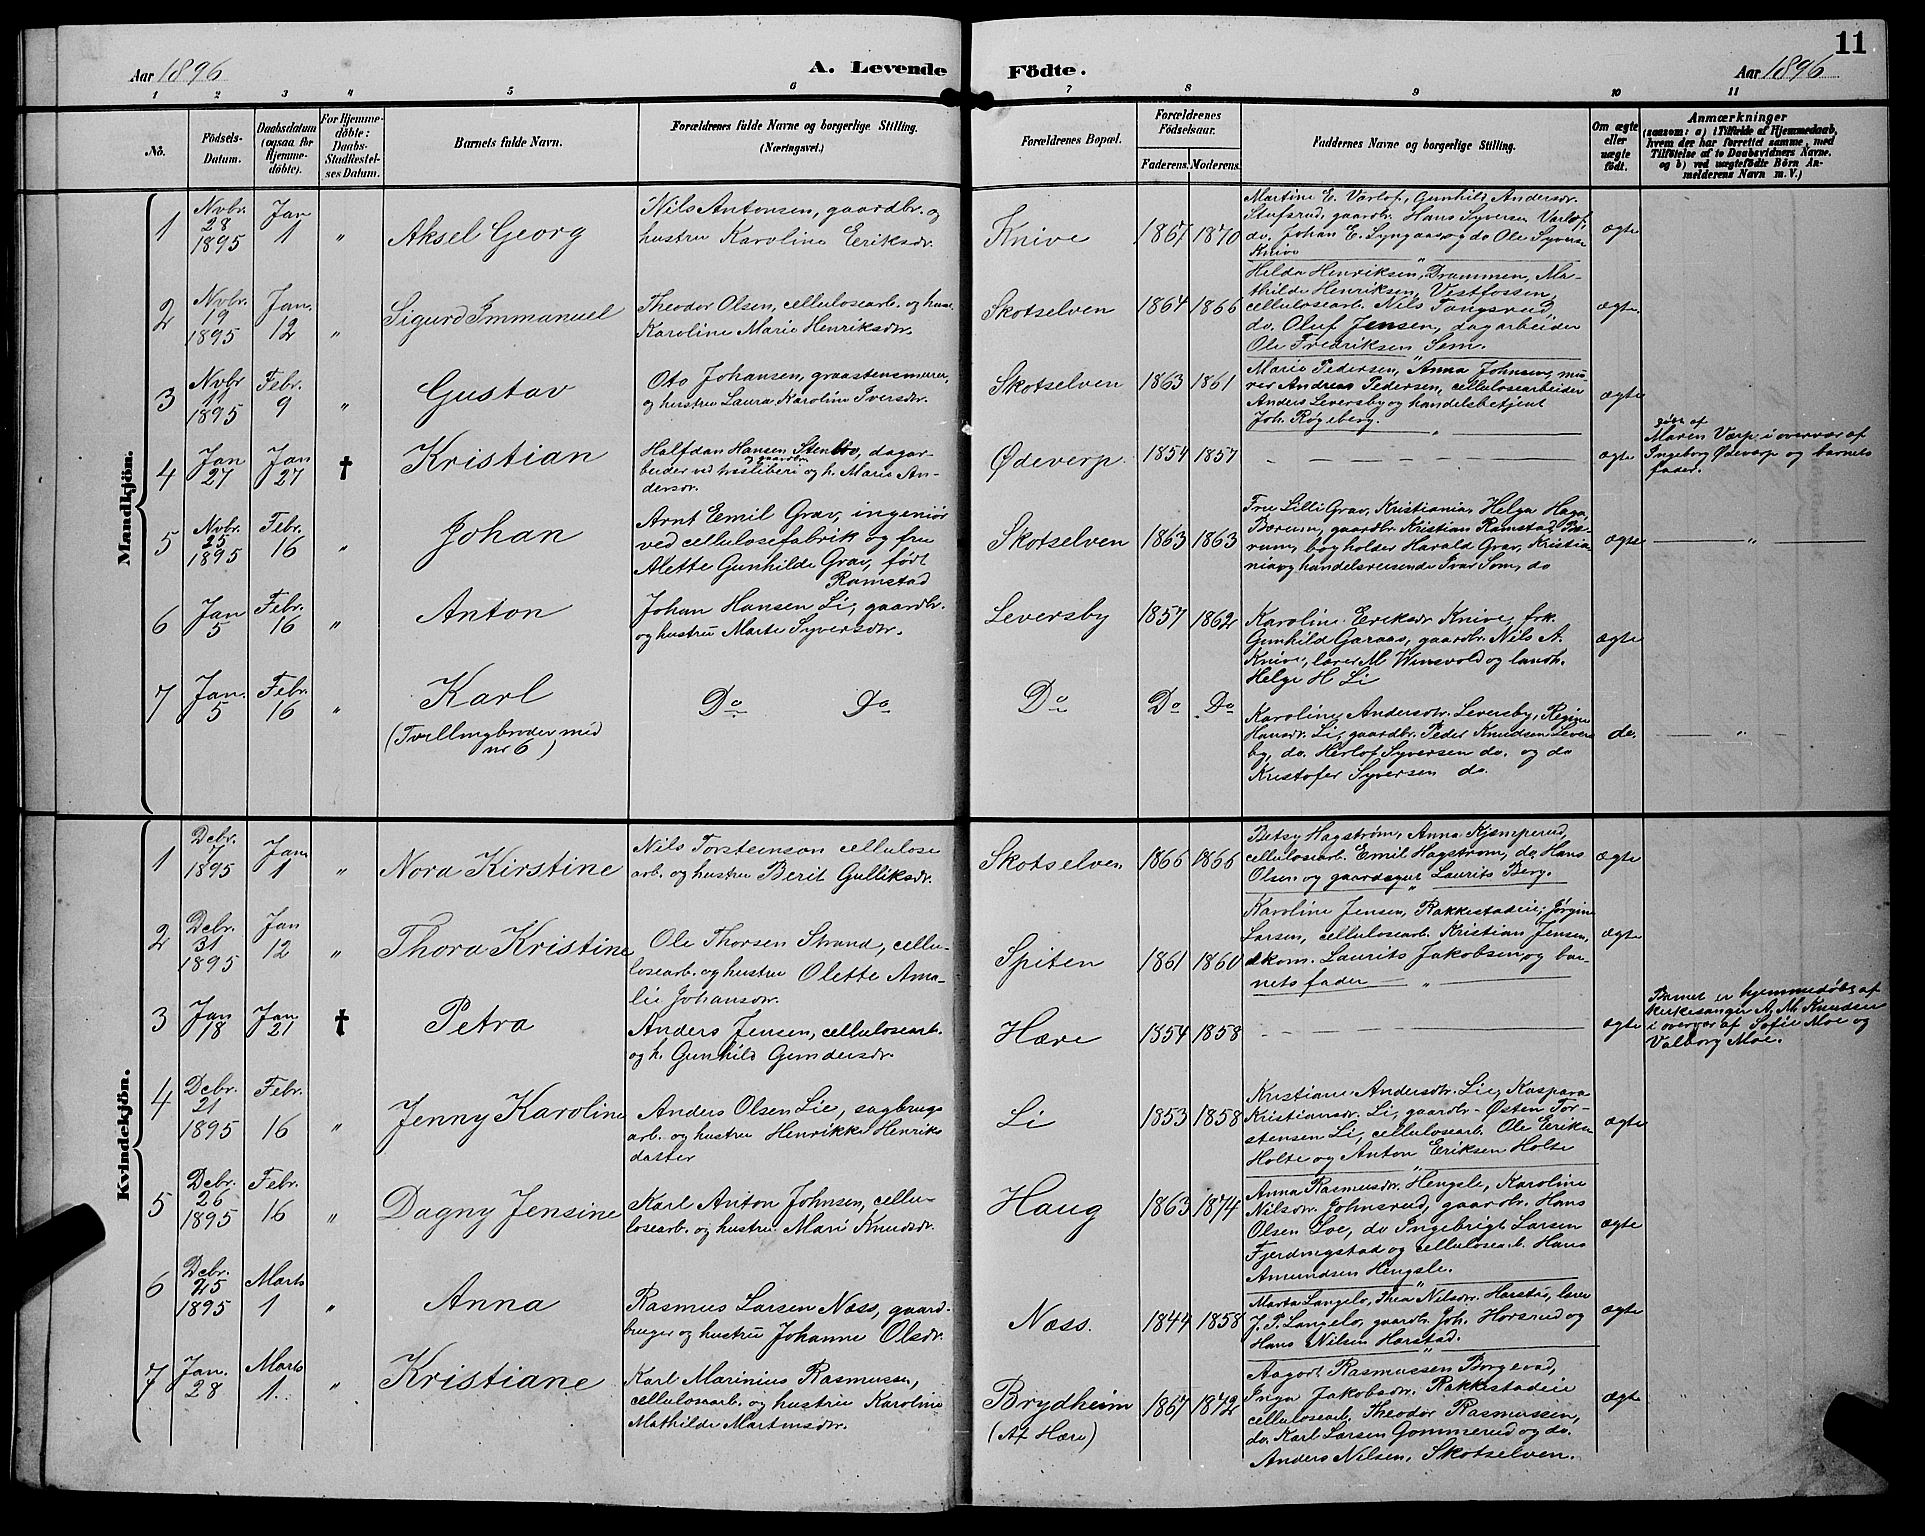 11
Aar 1896
A. Levende Fødte.
Aar 1896
1 2 3 4 5 6 7 8 9 10 11
No.
Fødsels-
Datum.
Daabsdatum
(ogsaa for
Hjemme-
døbte).
For Hjemme-
døbte:
Daabs-
Stadfæstel-
ses Datum.
Barnets fulde Navn.
Forældrenes fulde Navne og borgerlige Stilling.
(Næringsvei.)
Forældrenes Bopæl.
Forældrenes
Fødselsaar.
Faderens. Moderens.
Faddernes Navne og borgerlige Stilling.
Om ægte
eller
uægte
født.
Anmærkninger
(saasom: a) i Tilfælde af Hjemmedaab,
hvem der har forrettet samme, med
Tilføielse af to Daabsvidners Navne,
og b) ved uægtefødte Børn An-
melderens Navn m. V.)
Mandkjøn.
1
Nvbr.
28
1895
Jan
1
"
Aksel Georg
Nils Antonsen, gaardbr. og
hustru Karoline Eriksdr.
Knive
1867 1870
Martine E. Varlof, Gunhild Andersdr.
Stufsrud, gaardbr. Hans Syversen Varlof,
do. Johan E. Lyngaas og do Ole Syvers.
Knive
ægte
2
Nvbr.
19
1895
Jan.
12
"
Sigurd Immanuel
Theodor Olsen, cellulosearb. og hus.
Karoline Marie Henriksdr.
Skotselven
1864 1866
Helda Henriksen, Drammen, Ma-
thilde Henriksen, Vestfossen,
cellulosearb. Nils Tangsrud,
do. Oluf Jensen, dagarbeider
Ole Fredriksen Sem.
ægte.
3
Nvbr
11
1895
Febr.
9
"
Gustav
Oto Johansen, graastensmurer,
og hustru Laura Karoline Iversdr.
Skotselven
1863 1861
Marie Pedersen, Anna Johnsen, mu-
rer Andreas Pedersen, cellulosearbeider
Anders Leversby og handelsbetjent
Joh. Røgeberg.
ægte
4
Jan
27
Jan
27
†
Kristian
Halfdan Hansen Stenbro, dagar-
og gaardbr.
beider ved træsliberi og h. Marie An-
dersdr.
Ødeverp.
1854 1857
ægte
gjdt af
Maren Værp i overvær af
Ingeborg Ødevarp og barnets
fader.
5
Nvbr.
25
1895
Febr.
16
"
Johan
Arnt Emil Grav, ingeniør
ved cellulosefabrik og fru
Alette Gunhilde Grav, født
Ramstad
Skotselven
1863 1863
Fru Lilli Grav, Kristiania, Helga Haga,
Bærum, gaardbr. Kristian Ramstad, Bæ-
rum, bogholder Harald Grav, Kristia-
nia og handelsreisende Ivar Som, do
ægte
6
Jan
5
Febr.
16
"
Anton
Johan Hansen Li, gaardbr.
og hustru Marte Syversdr.
Leversby
1857 1862
Karoline Eriksdr Knive, frk.
Gunhild Garaas, gaardbr. Nils A.
Knive, lærer M. Winsvold og landh.
Helge H Li
ægte
7
Jan.
5
Febr.
16
"
Karl
(Tvillingbroder med
nr 6)
Do Do
Do
Do Do
Karoline Andersdr. Leversby, Regine
Hansdr. Li, gaardbr. Peder Knudsen Levers
by, do. Herlof Syversen do. og do
Kristofer Syversen do.
do.
Kvindekjøn.
1
Debr.
7
1895
Jan
1
"
Nora Kirstine
Nils Torsteinson cellulose
arb. og hustru Berit Gulliksdr.
Skotselven
1866 1866
Betsy Hagstrøm, Anna Kjemperud,
cellulosearb. Emil Hagstrøm, do. Hans
Olsen og gaardejer Laurits Berg.
ægte
2
Debr.
31
1895
Jan
12
"
Thora Kristine
Ole Thorsen Strand, cellu-
losearb. og hustru Olette Ama-
lie Johansdr.
Spiten
1861 1860
Karoline Jensen, Rakkestadeie, Jørgine
Larsen, cellulosearb. Kristian Jensen,
skom. Laurits Jakobsen og bar-
nets fader
ægte
3
Jan
18
Jan
21
†
Petra
Anders Jensen, cellulosearb.
og h. Gunhild Gundersdr.
Hære
1854 1858
ægte
Barnet er hjemmedøbt af
kirkesanger A. M. Knudsen
i overvær af Sofie Moe og
Valborg Moe.
4
Debr.
21
1895
Febr.
16
"
Jenny Karoline
Anders Olsen Lie, sagbrugs
arb. og hustru Henrikke Henriks
datter
Li
1853 1858
Kristiane Andersdr. Lie, Kaspara
Kristiansdr. Li, gaardbr. Østen Tor-
stensen Li, cellulosearb. Ole Eriksen
Holte og Anton Eriksen Holte
ægte
5
Debr.
26
1895
Febr.
16
"
Dagny Jensine
Karl Anton Johnsen, cellu-
losearb. og hustru Mari Knudsdr.
Haug
1863 1874
Anna Rasmusdr. Hengsle, Karoline
Nilsdr. Johnsrud, gaardbr. Hans
Olsen Loe, do Ingebrigt Larsen
Fjerdingstad og cellulosearb. Hans
Amundsen Hengsle.
ægte
6
Debr.
25
1895
Marts
1
"
Anna
Rasmus Larsen Næss, gaard-
bruger og hustru Johanne Olsdr.
Næss.
1844 1858
Marta Langelo, Thea Nilsdr. Harstad, lærer
J. P. Langelo, gaardb. Joh. Horsrud og
Hans Nilsen Harstad.
ægte
7
Jan.
28
Marts
1.
"
Kristiane
Karl Marinius Rasmussen,
cellulosearb. og hustru Karoline
Mathilde Martinsdr.
Brydheim
(Af Hære)
1867 1872
Aagot Rasmussen Borgevad,
Inga Jakobsdr. Rakkestadeie
cellulosearb. Theodor Rasmussen,
do. Karl Larsen Gommerud og do.
Anders Nilsen, Skotselven.
ægte